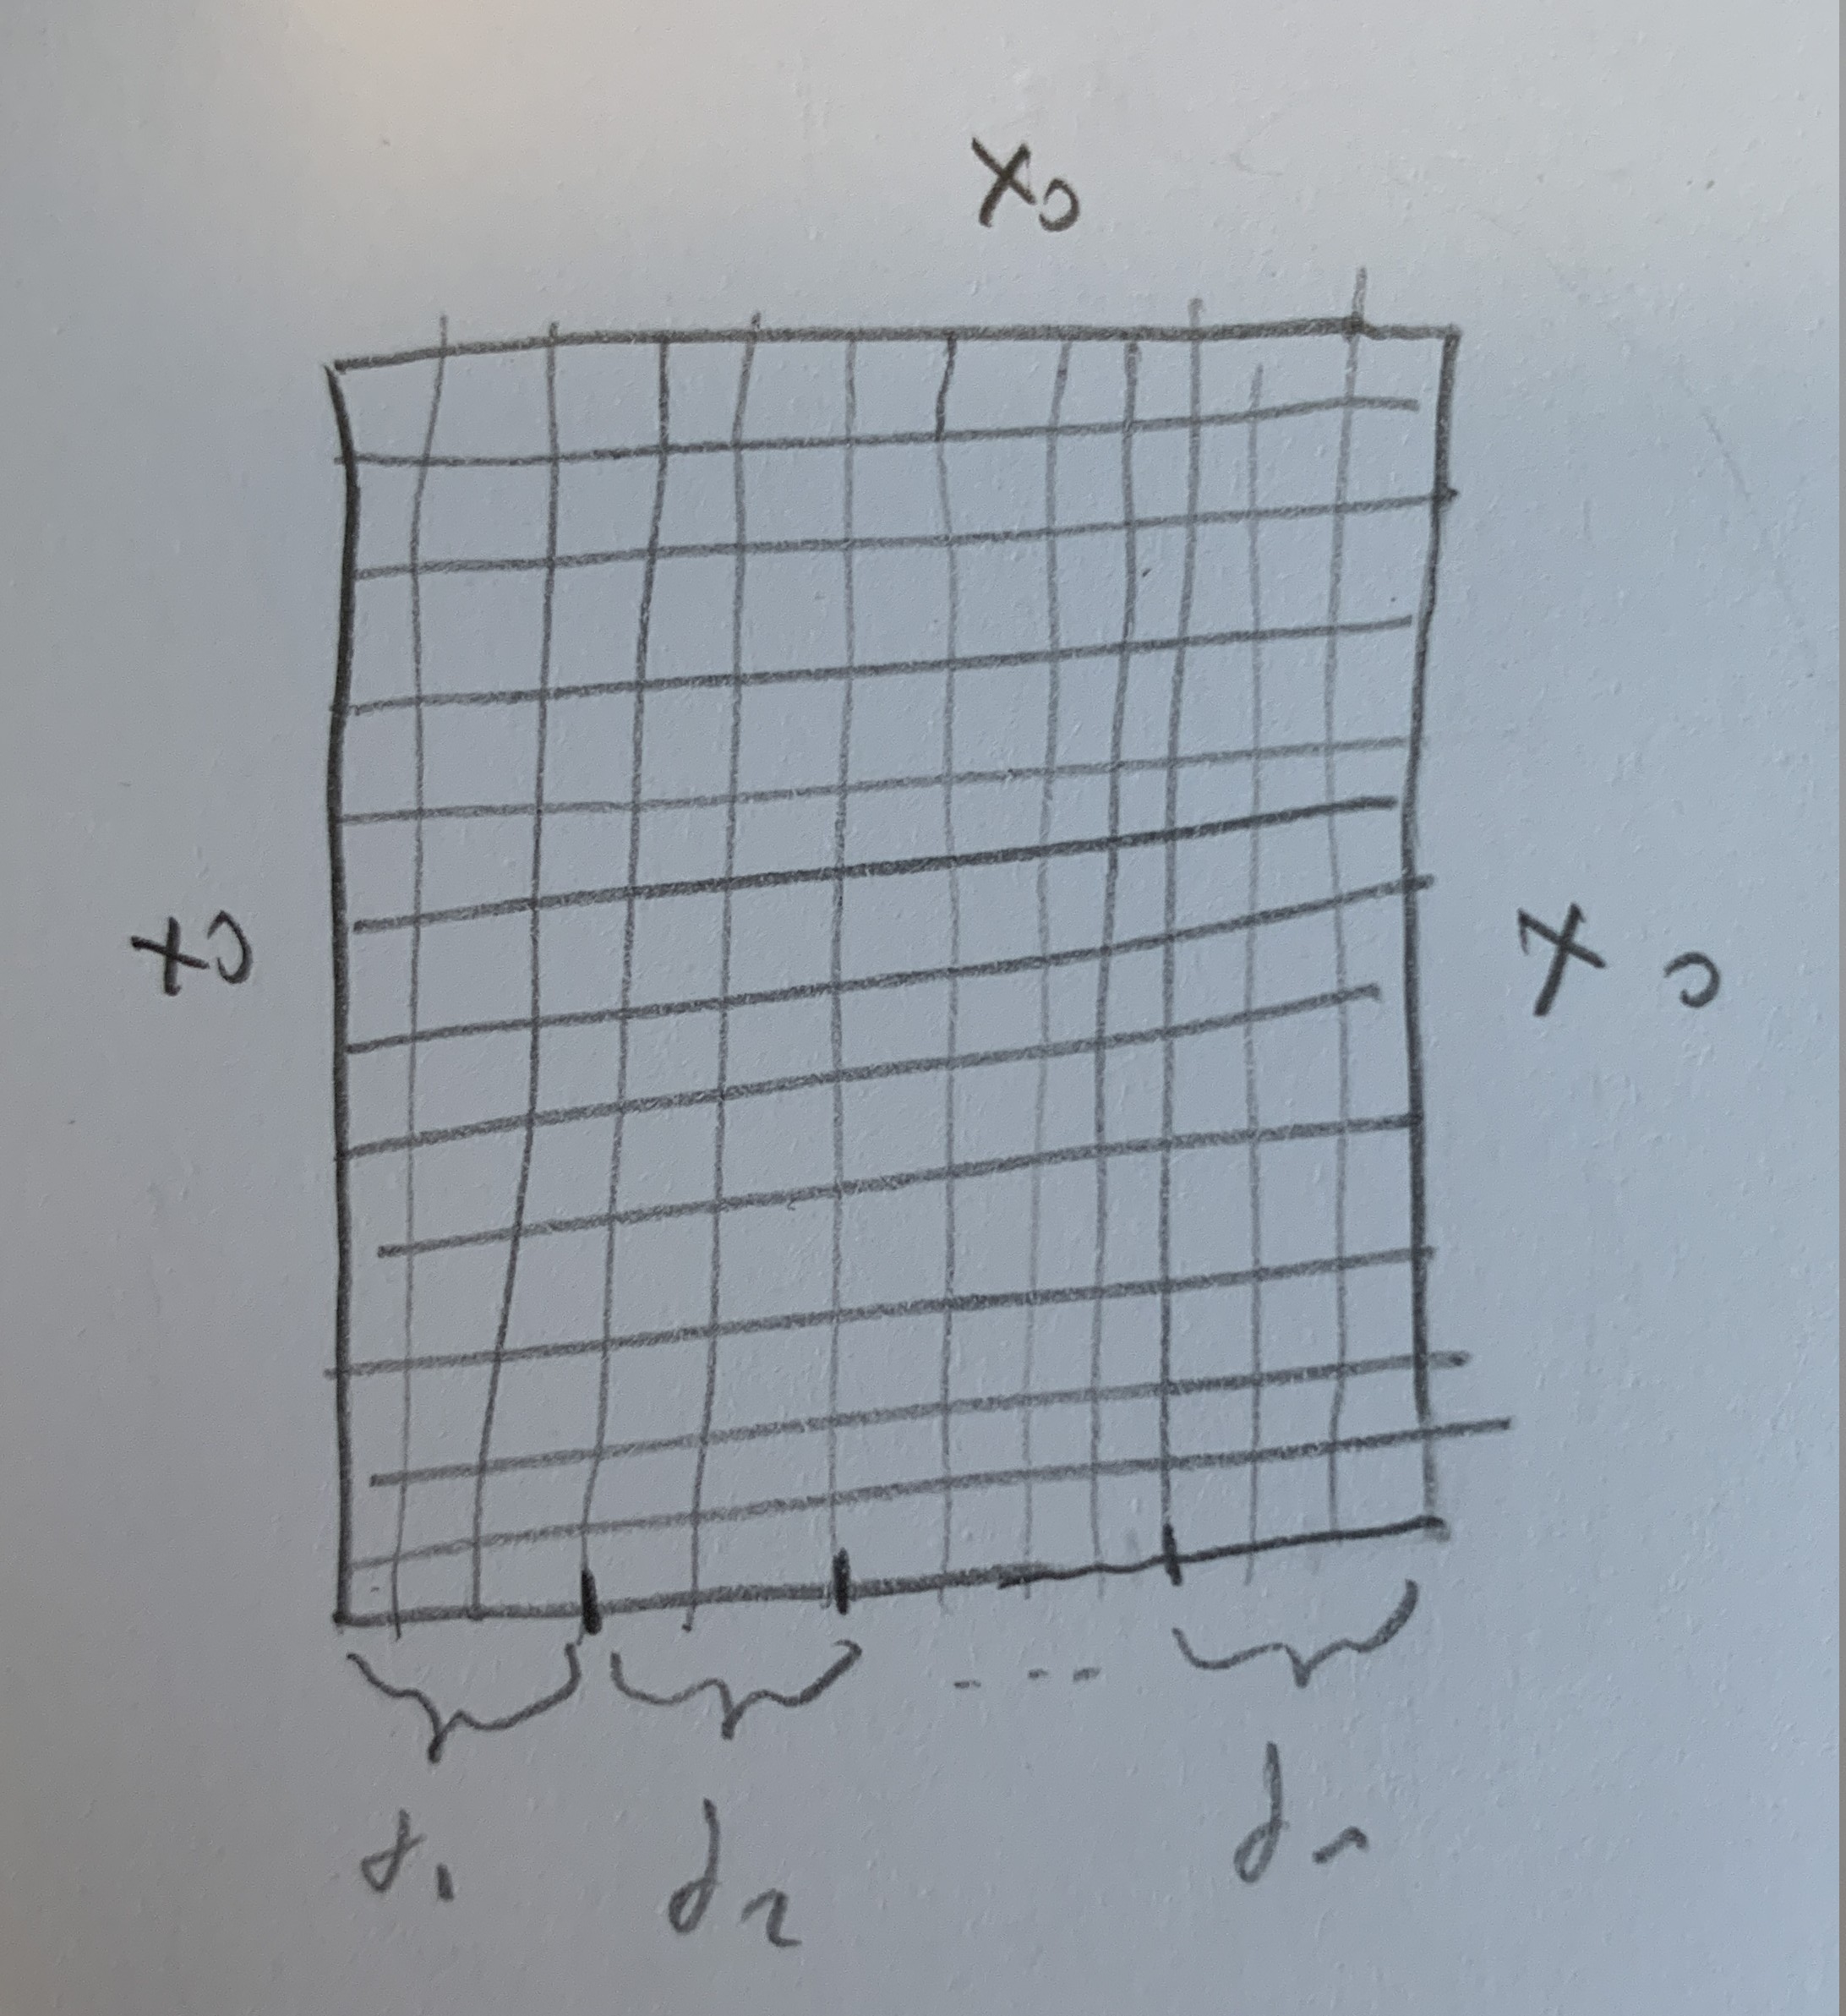 x₀
x₀ x₀
d₁ d₂ ---- dₙ